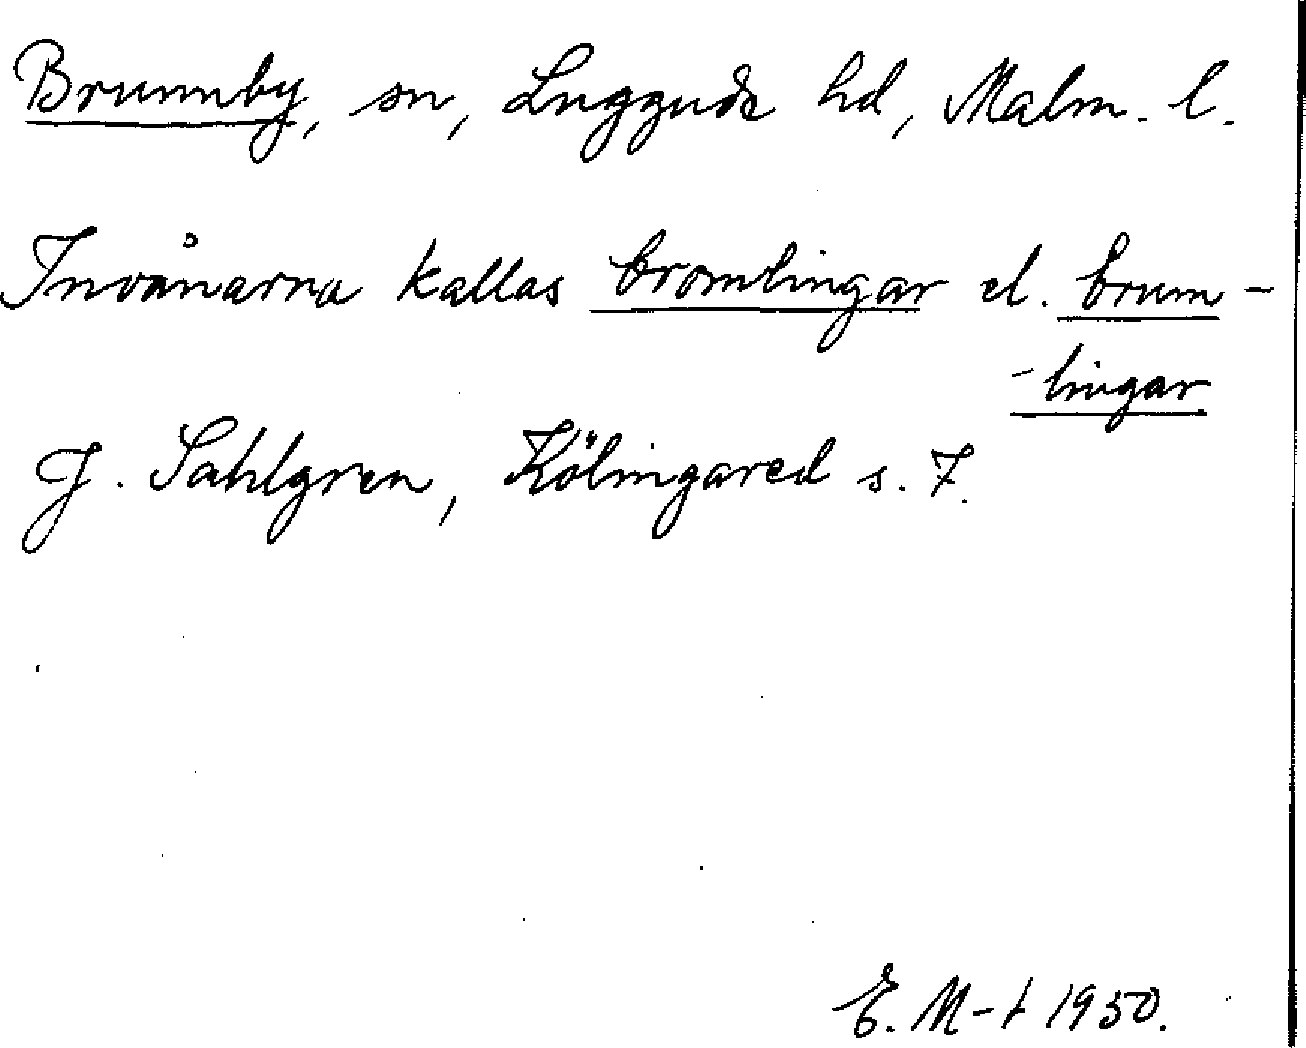 Brunnby, sn, Luggude hd, Malm. l.
Invånarna kallas bromlingar el. brum-
-lingar
J. Sahlgren, Kölingared s. 7.
E. M-t 1950.